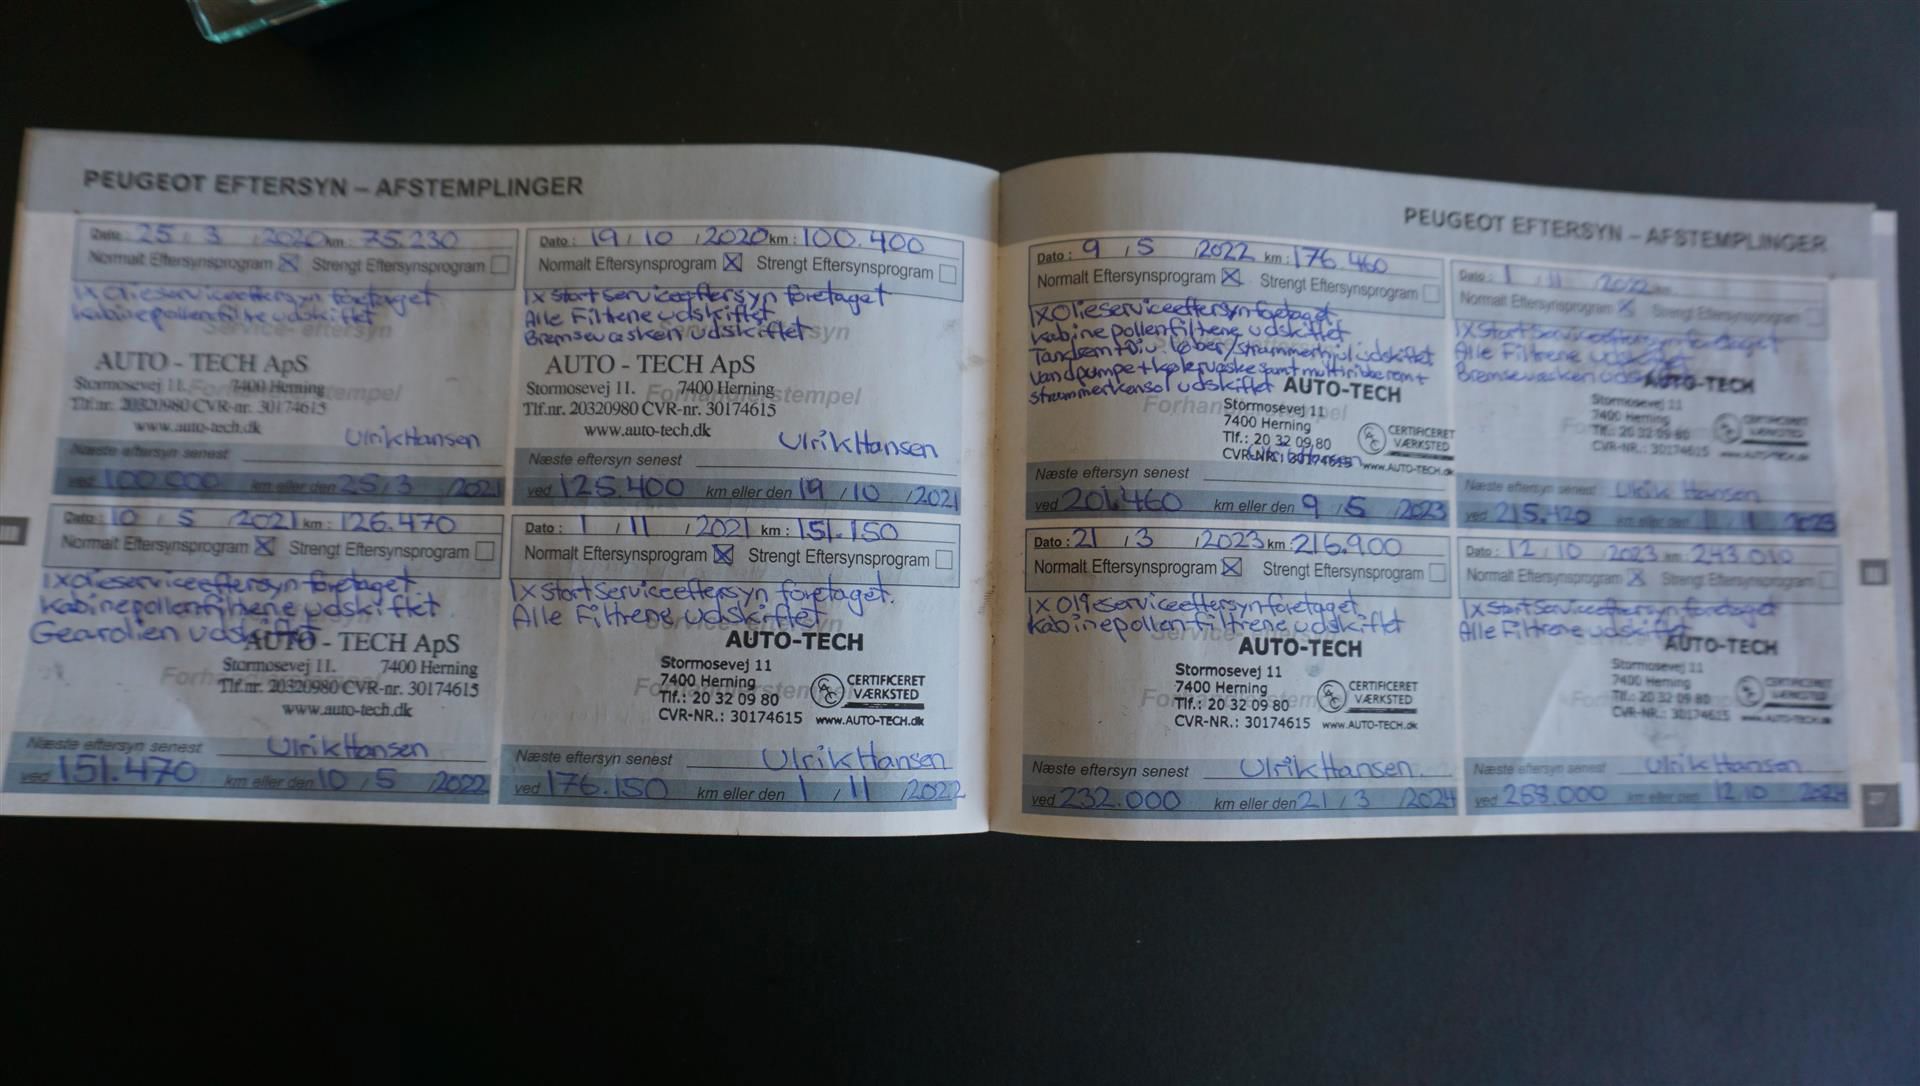 PEUGEOT EFTERSYN – AFSTEMPLINGER
Dato: 25 / 3 / 2020 km: 75.230
Normalt Eftersynsprogram ☒ Strengt Eftersynsprogram ☐
1x Olieserviceeftersyn foretaget
kabinepollenfiltre udskiftet
Service - eftersyn
AUTO - TECH ApS
Stormosevej 11. 7400 Herning
Forhandlerstempel
Tlf.nr. 20320980 CVR-nr. 30174615
www.auto-tech.dk
Ulrik Hansen
Næste eftersyn senest
ved 100.000 km eller den 25 / 3 / 2021
Dato: 19 / 10 / 2020 km: 100.400
Normalt Eftersynsprogram ☒ Strengt Eftersynsprogram ☐
1x Start Serviceeftersyn foretaget
Alle Filtrene udskiftet
Bremsevæsken udskiftet
AUTO - TECH ApS
Stormosevej 11. 7400 Herning
Forhandlerstempel
Tlf.nr. 20320980 CVR-nr. 30174615
www.auto-tech.dk
Ulrik Hansen
Næste eftersyn senest
ved 125.400 km eller den 19 / 10 / 2021
Dato: 10 / 5 / 2021 km: 126.470
Normalt Eftersynsprogram ☒ Strengt Eftersynsprogram ☐
1x Olieserviceeftersyn foretaget.
kabinepollenfiltrene udskiftet.
Gearolien udskiftet
AUTO - TECH ApS
Stormosevej 11. 7400 Herning
Tlf.nr. 20320980 CVR-nr. 30174615
www.auto-tech.dk
Næste eftersyn senest Ulrik Hansen
ved 151.470 km eller den 10 / 5 / 2022
Dato: 1 / 11 / 2021 km: 151.150
Normalt Eftersynsprogram ☒ Strengt Eftersynsprogram ☐
1x Start Serviceeftersyn foretaget.
Alle Filtrene udskiftet
AUTO-TECH
Stormosevej 11
7400 Herning
Tlf.: 20 32 09 80
CVR-NR.: 30174615
CERTIFICERET
VÆRKSTED
www.AUTO-TECH.dk
Næste eftersyn senest Ulrik Hansen
ved 176.150 km eller den 1 / 11 / 2022
PEUGEOT EFTERSYN – AFSTEMPLINGER
Dato: 9 / 5 / 2022 km: 176.460
Normalt Eftersynsprogram ☒ Strengt Eftersynsprogram ☐
1x Olieserviceeftersyn foretaget
kabinepollenfiltrene udskiftet
Tandrem + Div. løber/strammerhjul udskiftet
vandpumpe + kølervæske samt multiribberem +
strammerkonsol udskiftet
AUTO-TECH
Stormosevej 11
7400 Herning
Tlf.: 20 32 09 80
CVR-NR.: 30174615
CERTIFICERET
VÆRKSTED
www.AUTO-TECH.dk
Ulrik Hansen
Næste eftersyn senest
ved 201.460 km eller den 9 / 5 / 2023
Dato: 1 / 11 / 2022 km:
Normalt Eftersynsprogram ☒ Strengt Eftersynsprogram ☐
1x Start Serviceeftersyn foretaget
Alle Filtrene udskiftet
Bremsevæsken udskiftet
AUTO-TECH
Stormosevej 11
7400 Herning
Tlf.: 20 32 09 80
CVR-NR.: 30174615
CERTIFICERET
VÆRKSTED
www.AUTO-TECH.dk
Næste eftersyn senest Ulrik Hansen
ved 215.420 km eller den 1 / 1 / 2023
Dato: 21 / 3 / 2023 km: 216.900
Normalt Eftersynsprogram ☒ Strengt Eftersynsprogram ☐
1x Olieserviceeftersyn foretaget
kabinepollenfiltrene udskiftet
AUTO-TECH
Stormosevej 11
7400 Herning
Tlf.: 20 32 09 80
CVR-NR.: 30174615
CERTIFICERET
VÆRKSTED
www.AUTO-TECH.dk
Næste eftersyn senest Ulrik Hansen
ved 232.000 km eller den 21 / 3 / 2024
Dato: 12 / 10 2023 km: 243.010
Normalt Eftersynsprogram ☒ Strengt Eftersynsprogram ☐
1x Start Serviceeftersyn foretaget
Alle Filtrene udskiftet
AUTO-TECH
Stormosevej 11
7400 Herning
Tlf.: 20 32 09 80
CVR-NR.: 30174615
CERTIFICERET
VÆRKSTED
www.AUTO-TECH.dk
Næste eftersyn senest Ulrik Hansen
ved 268.000 km eller den 12.10 2024
27